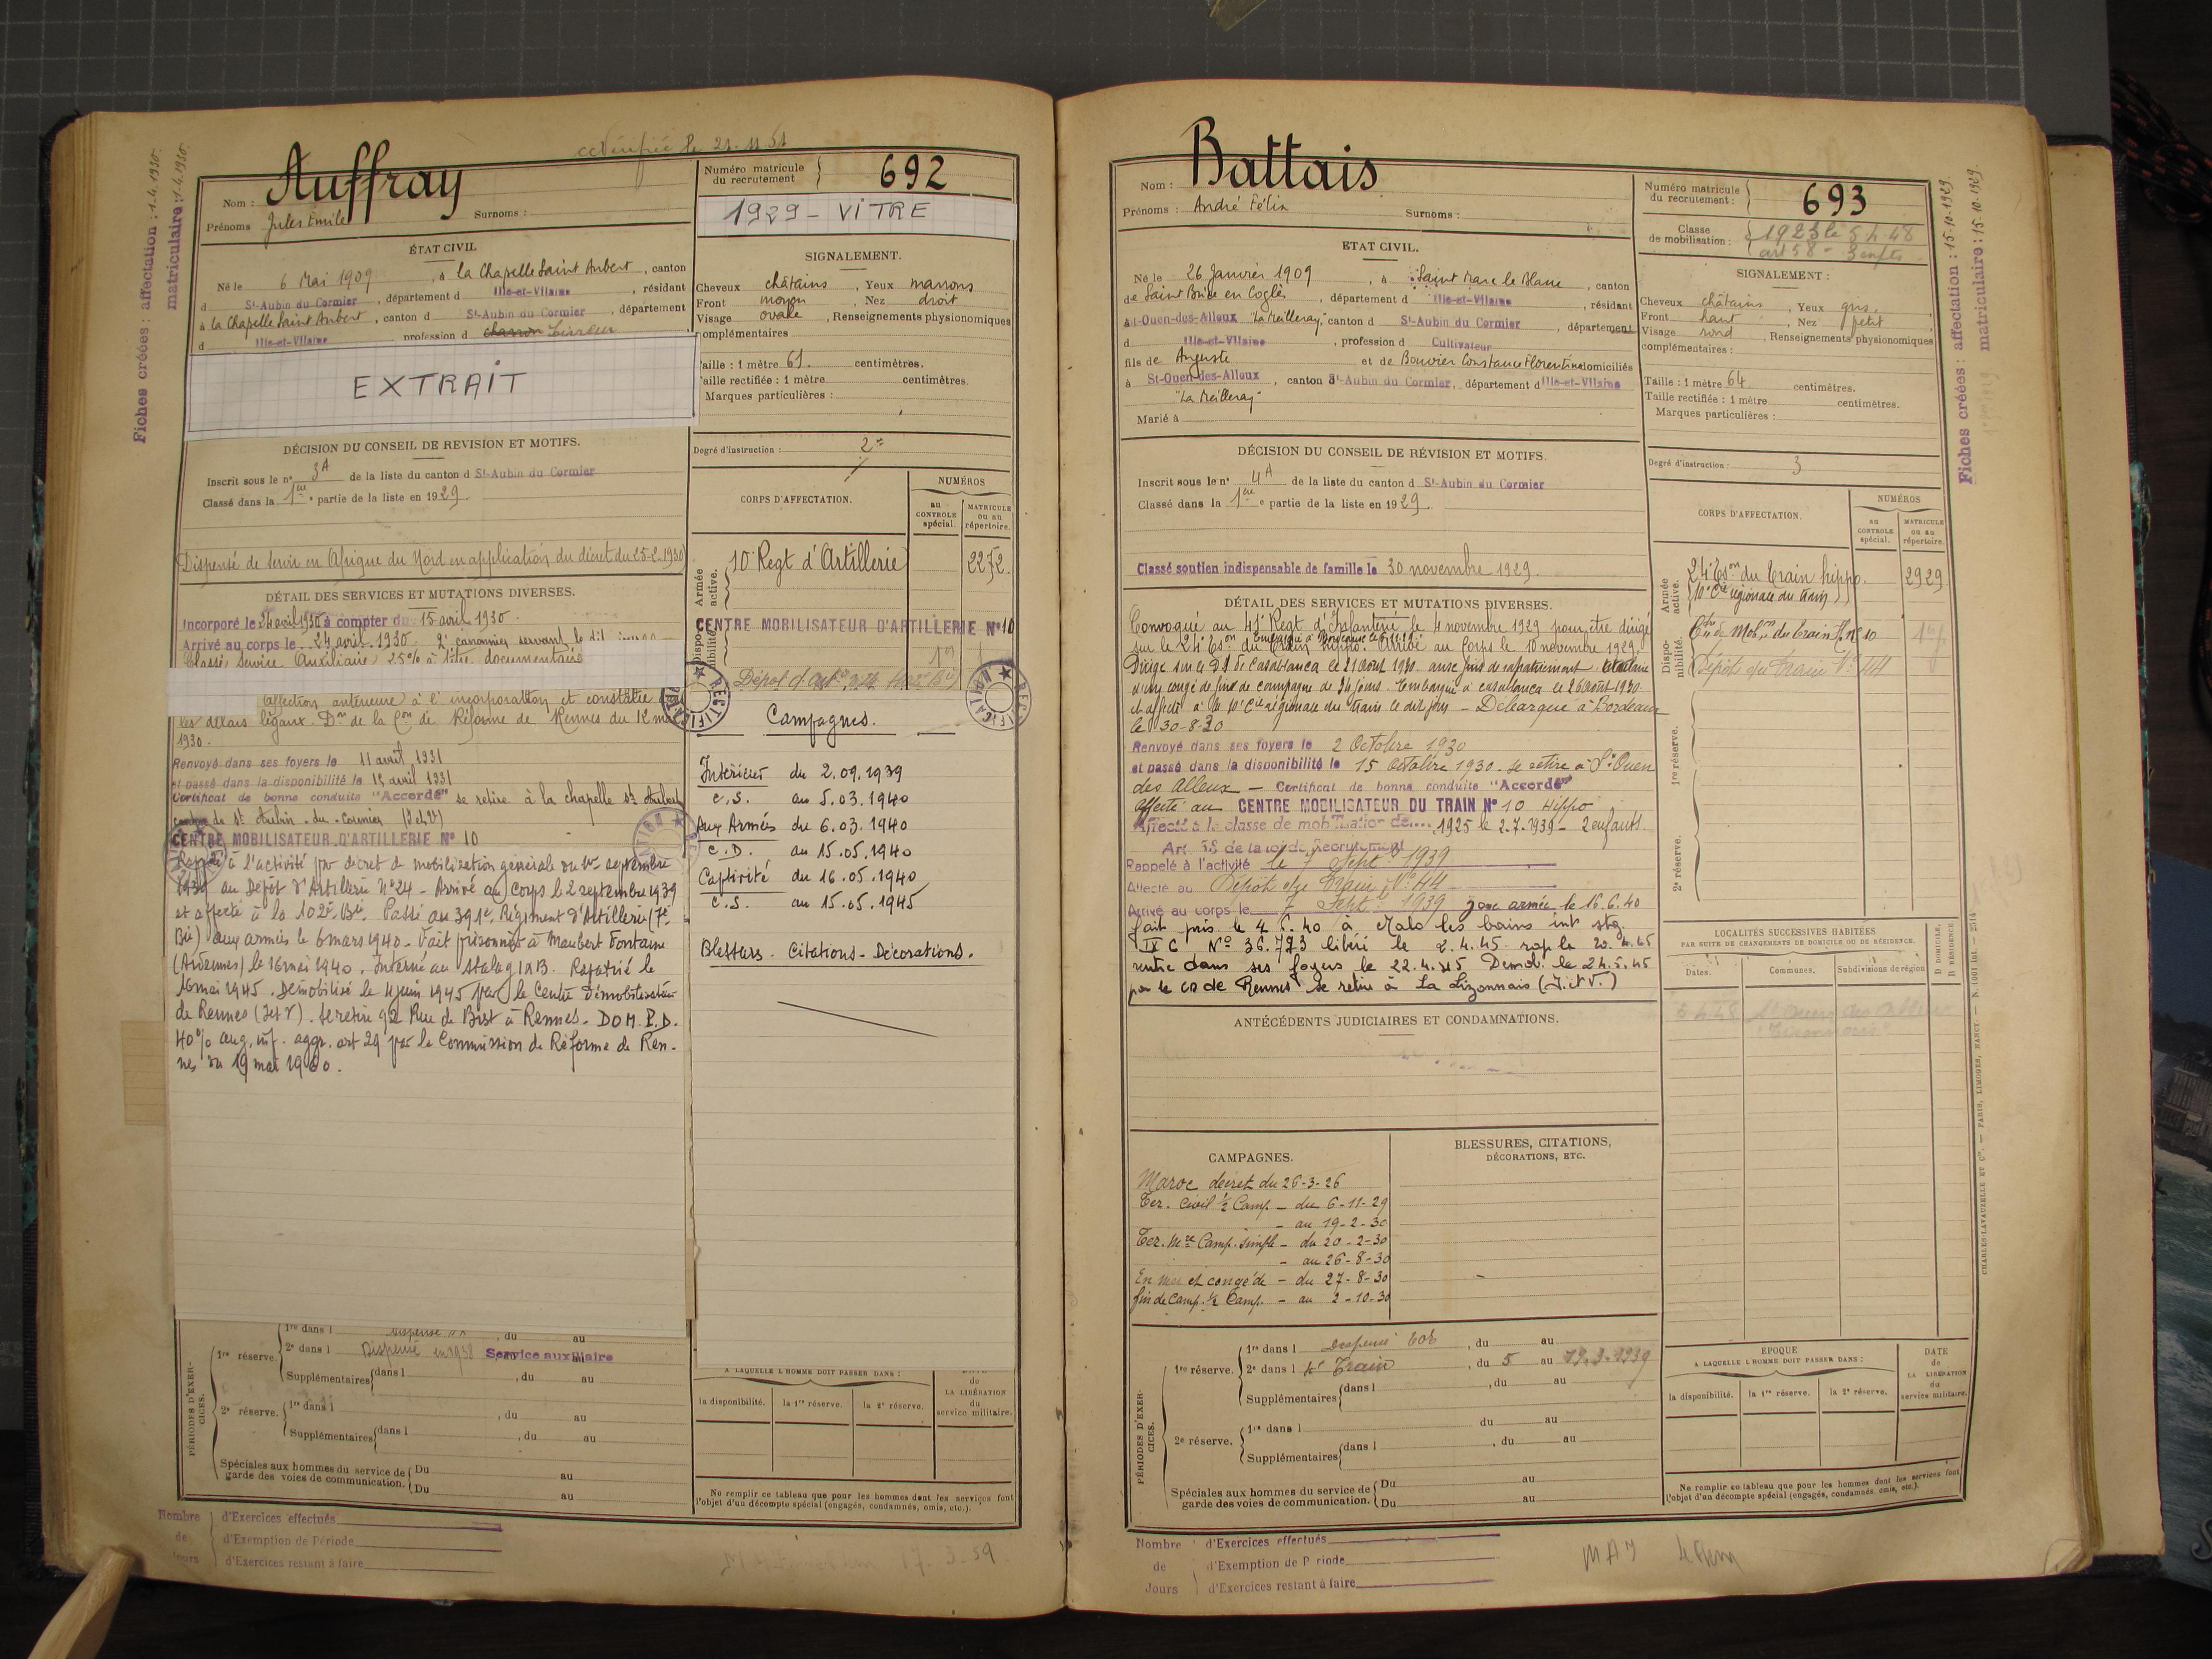 Vérifié le 21.11.51
Fiches créées : affectation : 1-4.1930.
matriculaire : 1-4.1930.
Nom : Auffray
Prénoms Jules Emile Surnoms :
Numéro matricule du recrutement 692
1929 - VITRE
ÉTAT CIVIL
Né le 6 Mai 1909, à la Chapelle Saint Aubert, canton
d St-Aubin du Cormier, département d Ille-et-Vilaine, résidant
à la Chapelle Saint Aubert, canton d St-Aubin du Cormier, département
d Ille-et-Vilaine profession d charron
EXTRAIT
SIGNALEMENT.
Cheveux châtains, Yeux marrons
Front moyen, Nez droit
Visage ovale, Renseignements physionomiques
complémentaires
Taille : 1 mètre 61. centimètres.
Taille rectifiée : 1 mètre centimètres.
Marques particulières :
Degré d'instruction : 2
DÉCISION DU CONSEIL DE REVISION ET MOTIFS.
Inscrit sous le n° 3A de la liste du canton d St-Aubin du Cormier
Classé dans la 1ère partie de la liste en 1929.
Dispensé de servir en Afrique du Nord en application du décret du 25-2-1930
DÉTAIL DES SERVICES ET MUTATIONS DIVERSES.
Incorporé le 24 avril 1930 à compter du 15 avril 1930.
Arrivé au corps le 24 avril 1930. 2e canonnier servant le dit
Classé Service Auxiliaire 25% à titre documentaire
(affection antérieure à l'incorporation et constatée
les délais légaux. Don de la Con de Réforme de Rennes du 12 mai
1930.
Renvoyé dans ses foyers le 11 avril 1931
et passé dans la disponibilité le 15 avril 1931
Certificat de bonne conduite "Accordé" se retire à la chapelle St Aubert
canton de St Aubin-du-Cormier (I et V)
CENTRE MOBILISATEUR D'ARTILLERIE N° 10
Rappelé à l'activité par décret de mobilisation générale du 1er septembre
1939 au Dépôt d'Artillerie N°24 - Arrivé au Corps le 2 septembre 1939
et affecté à la 102e Bie. Passé au 391e Régiment d'Artillerie (7e
Bie) aux armées le 6 mars 1940 - Fait prisonnier à Maubert Fontaine
(Ardennes) le 16 mai 1940. Interné au Stalag IA B. Rapatrié le
16 mai 1945. Démobilisé le 4 juin 1945 par le Centre Démobilisateur
de Rennes (I et V). Se retire 92 Rue de Brest à Rennes. DOM. P.D.
40% aug. inf. aggr. art 29 par la Commission de Réforme de Ren-
nes du 19 mai 1960.
CORPS D'AFFECTATION.
NUMÉROS
au CONTROLE spécial. MATRICULE ou au répertoire.
Armée active. 10e Regt d'Artillerie 2272
Disponibilité. CENTRE MOBILISATEUR D'ARTILLERIE N° 10
RECTIFICATION
Campagnes.
Intérieur du 2.09.1939
C.S. au 5.03.1940
Aux Armées du 6.03.1940
C.D. au 15.05.1940
Captivité du 16.05.1940
C.S. au 15.05.1945
Blessures - Citations - Décorations.
PÉRIODES D'EXERCICES.
1re réserve. 1re dans l Dispensé, du au
2e dans l Dispensé en 1938 Service auxiliaire
Supplémentaires dans l, du au
2e réserve. 1re dans l, du au
Supplémentaires dans l, du au
Spéciales aux hommes du service de garde des voies de communication. Du au
Du au
A LAQUELLE L'HOMME DOIT PASSER DANS :
la disponibilité. la 1re réserve. la 2e réserve.
DATE de LA LIBÉRATION du service militaire.
Ne remplir ce tableau que pour les hommes dont les services font
l'objet d'un décompte spécial (engagés, condamnés, omis, etc.).
Nombre de Jours
d'Exercices effectués
d'Exemption de Période
d'Exercices restant à faire
Nom : Battais
Prénoms : André Félix Surnoms :
Numéro matricule du recrutement : 693
Classe de mobilisation : 1923 le 5.4.48
art 58 - 3 enfts
Fiches créées : affectation : 15-10-1929.
matriculaire : 15-10-1929.
ETAT CIVIL.
Né le 26 Janvier 1909, à Saint Marc le Blanc, canton
de Saint Brice en Coglès, département d Ille-et-Vilaine, résidant
à St-Ouen-des-Alleux "La Meilleray", canton d St-Aubin du Cormier, département
d Ille-et-Vilaine, profession d Cultivateur
fils de Auguste et de Bouvier Constance Florentine domiciliés
à St-Ouen-des-Alleux, canton St-Aubin du Cormier, département d Ille-et-Vilaine
"La Meilleray"
Marié à
SIGNALEMENT :
Cheveux châtains, Yeux gris.
Front haut, Nez petit
Visage rond, Renseignements physionomiques
complémentaires :
Taille : 1 mètre 64. centimètres.
Taille rectifiée : 1 mètre centimètres.
Marques particulières :
Degré d'instruction : 3
DÉCISION DU CONSEIL DE RÉVISION ET MOTIFS.
Inscrit sous le n° 4A de la liste du canton d St-Aubin du Cormier
Classé dans la 1ère partie de la liste en 1929.
Classé soutien indispensable de famille le 30 novembre 1929.
DÉTAIL DES SERVICES ET MUTATIONS DIVERSES.
Convoqué au 41e Régt d'Infanterie le 4 novembre 1929 pour être dirigé
sur le 24e Eson du Train hippo. Arrivé au Corps le 10 novembre 1929.
Dirigé sur le D.I. de Casablanca le 21 août 1930 avec fins de rapatriement
et un congé de fin de campagne de 34 jours. Embarqué à Casablanca le 26 août 1930.
et affecté à la 10e Cie régionale du train le dit jour - Débarqué à Bordeaux
le 30-8-30
Renvoyé dans ses foyers le 2 Octobre 1930
et passé dans la disponibilité le 15 octobre 1930 - se retire à St Ouen
des Alleux - Certificat de bonne conduite "Accordé"
Affecté au CENTRE MOBILISATEUR DU TRAIN N° 10 Hippo
Affecté à la classe de mobilisation de 1925 le 2.7.1939 - 2 enfants.
Art. 58 de la loi de Recrutement
Rappelé à l'activité le 7 Sept. 1939
Affecté au Dépôt du Train N° 44
Arrivé au corps le 7 Sept. 1939 zone armée le 16.6.40
fait pris. le 4.6.40 à Malo les bains int stg.
IX C N° 36.773 libéré le 2.4.45 rap le 20.4.45
rentre dans ses foyers le 22.4.45 Démob. le 24.5.45
par le CD de Rennes se retire à La Lizonnais (I. et V.)
CORPS D'AFFECTATION.
NUMÉROS
au CONTROLE spécial. MATRICULE ou au répertoire.
Armée active. 24e Eson du Train hippo. 2929
(10e Cie régionale du train)
Disponibilité. Ctre de Mobon du train H. n° 10
Dépôt du Train N° 44
1re réserve.
2e réserve.
LOCALITÉS SUCCESSIVES HABITÉES
PAR SUITE DE CHANGEMENTS DE DOMICILE OU DE RÉSIDENCE.
Dates. Communes. Subdivisions de région D DOMICILE, R RÉSIDENCE
5.4.48 St Ouen des Alleux
ANTÉCÉDENTS JUDICIAIRES ET CONDAMNATIONS.
CAMPAGNES.
Maroc décret du 26-3-26
Ter. civil ½ Camp - du 6-11-29
- au 19-2-30
Ter. Mre Camp. simple - du 20-2-30
- au 26-8-30
En mer et congé de - du 27-8-30
fin de camp. ½ Camp. - au 2-10-30
BLESSURES, CITATIONS,
DÉCORATIONS, ETC.
PÉRIODES D'EXERCICES.
1re réserve. 1re dans l Dispensé, du au
2e dans l Train, du 5 au 19-3-1939
Supplémentaires dans l, du au
2e réserve. 1re dans l du au
Supplémentaires dans l, du au
Spéciales aux hommes du service de garde des voies de communication. Du au
Du au
EPOQUE
A LAQUELLE L'HOMME DOIT PASSER DANS :
la disponibilité. la 1re réserve. la 2e réserve.
DATE de LA LIBÉRATION du service militaire.
Ne remplir ce tableau que pour les hommes dont les services font
l'objet d'un décompte spécial (engagés, condamnés, omis, etc.).
CHARLES-LAVAUZELLE ET Cie. — PARIS, LIMOGES, NANCY
Nombre de Jours
d'Exercices effectués
d'Exemption de Période
d'Exercices restant à faire